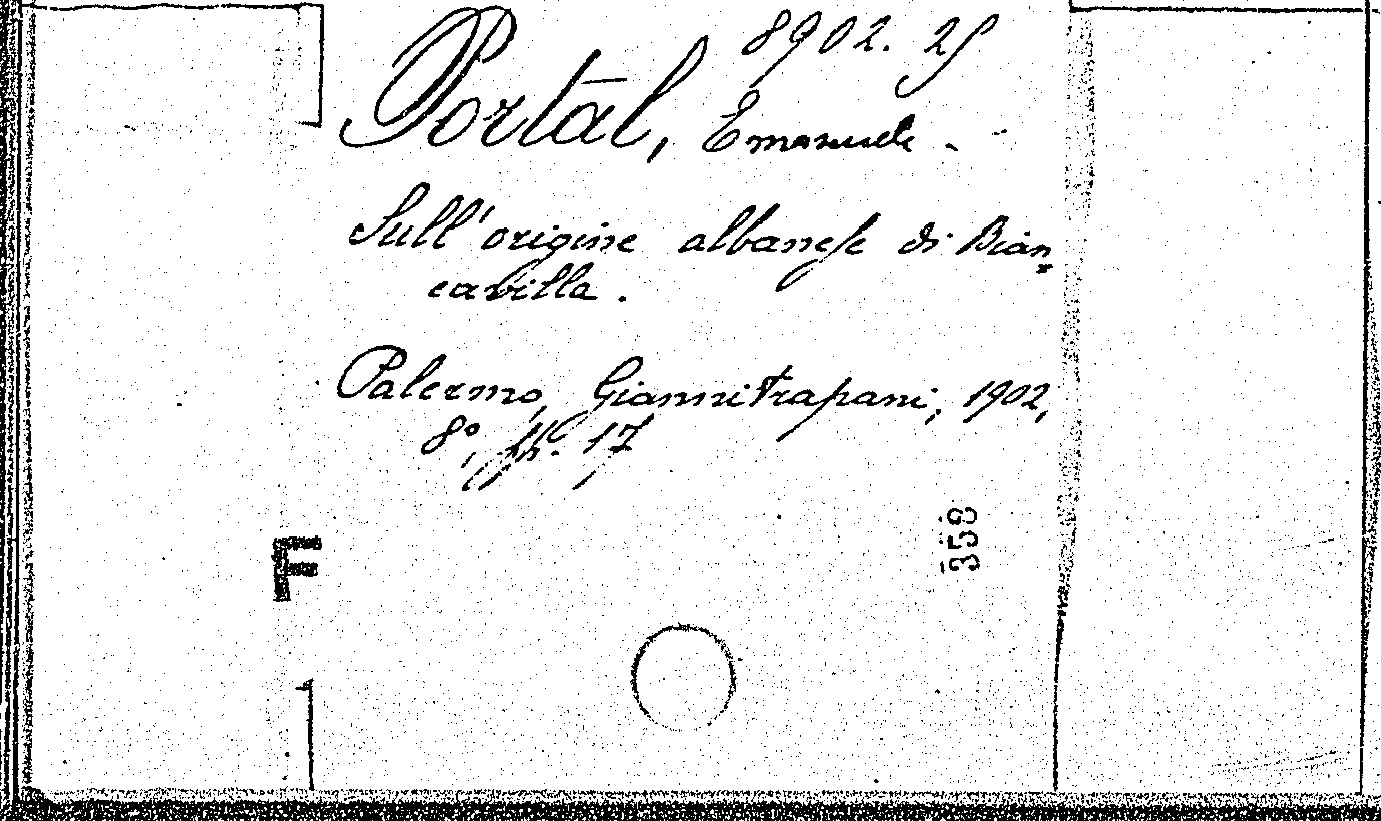 8902. 25
Portal, Emanuele.
Sull'origine albanese di Bian-
cavilla.
Palermo, Giannitrapani, 1902,
8°, pp. 17
358
F